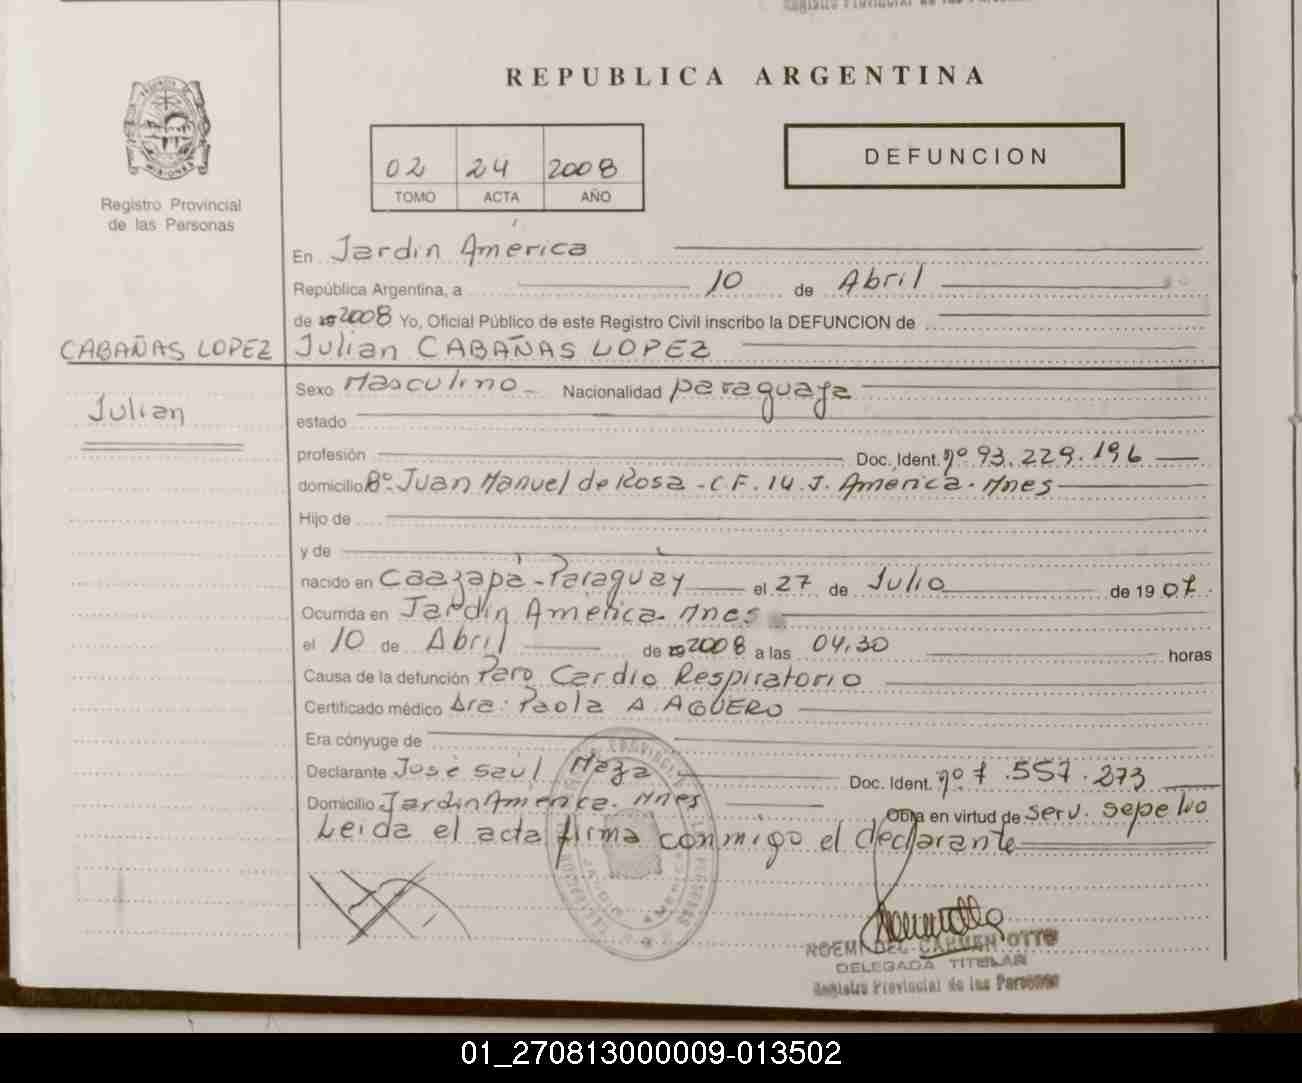 Registro Provincial de las Personas
REPUBLICA ARGENTINA
02 24 2008
TOMO ACTA AÑO
DEFUNCION
Registro Provincial
de las Personas
En Jardin América
República Argentina, a 10 de Abril
de 19 2008 Yo, Oficial Público de este Registro Civil inscribo la DEFUNCION de
CABAÑAS LOPEZ Julian CABAÑAS LOPEZ
Julian
Sexo Masculino Nacionalidad paraguaya
estado
profesión Doc. Ident. nº 93.229.196
domicilio Bº. Juan Manuel de Rosa - C F. 14 J. América. Mnes
Hijo de
y de
nacido en Caazapá - Paraguay el 27 de Julio de 19 07.
Ocurrida en Jardín América. Mnes
el 10 de Abril de 19 2008 a las 04,30 horas
Causa de la defunción Paro Cardio Respiratorio
Certificado médico Dra. Paola A. AGUERO
Era cónyuge de
Declarante José Saúl Meza Doc. Ident. nº 7.557.273
Domicilio Jardín América. Mnes Obra en virtud de Serv. Sepelio
Leida el acta firma conmigo el declarante
NOEMI DEL CARMEN OTTO
DELEGADA TITULAR
Registro Provincial de las Personas
01_270813000009-013502